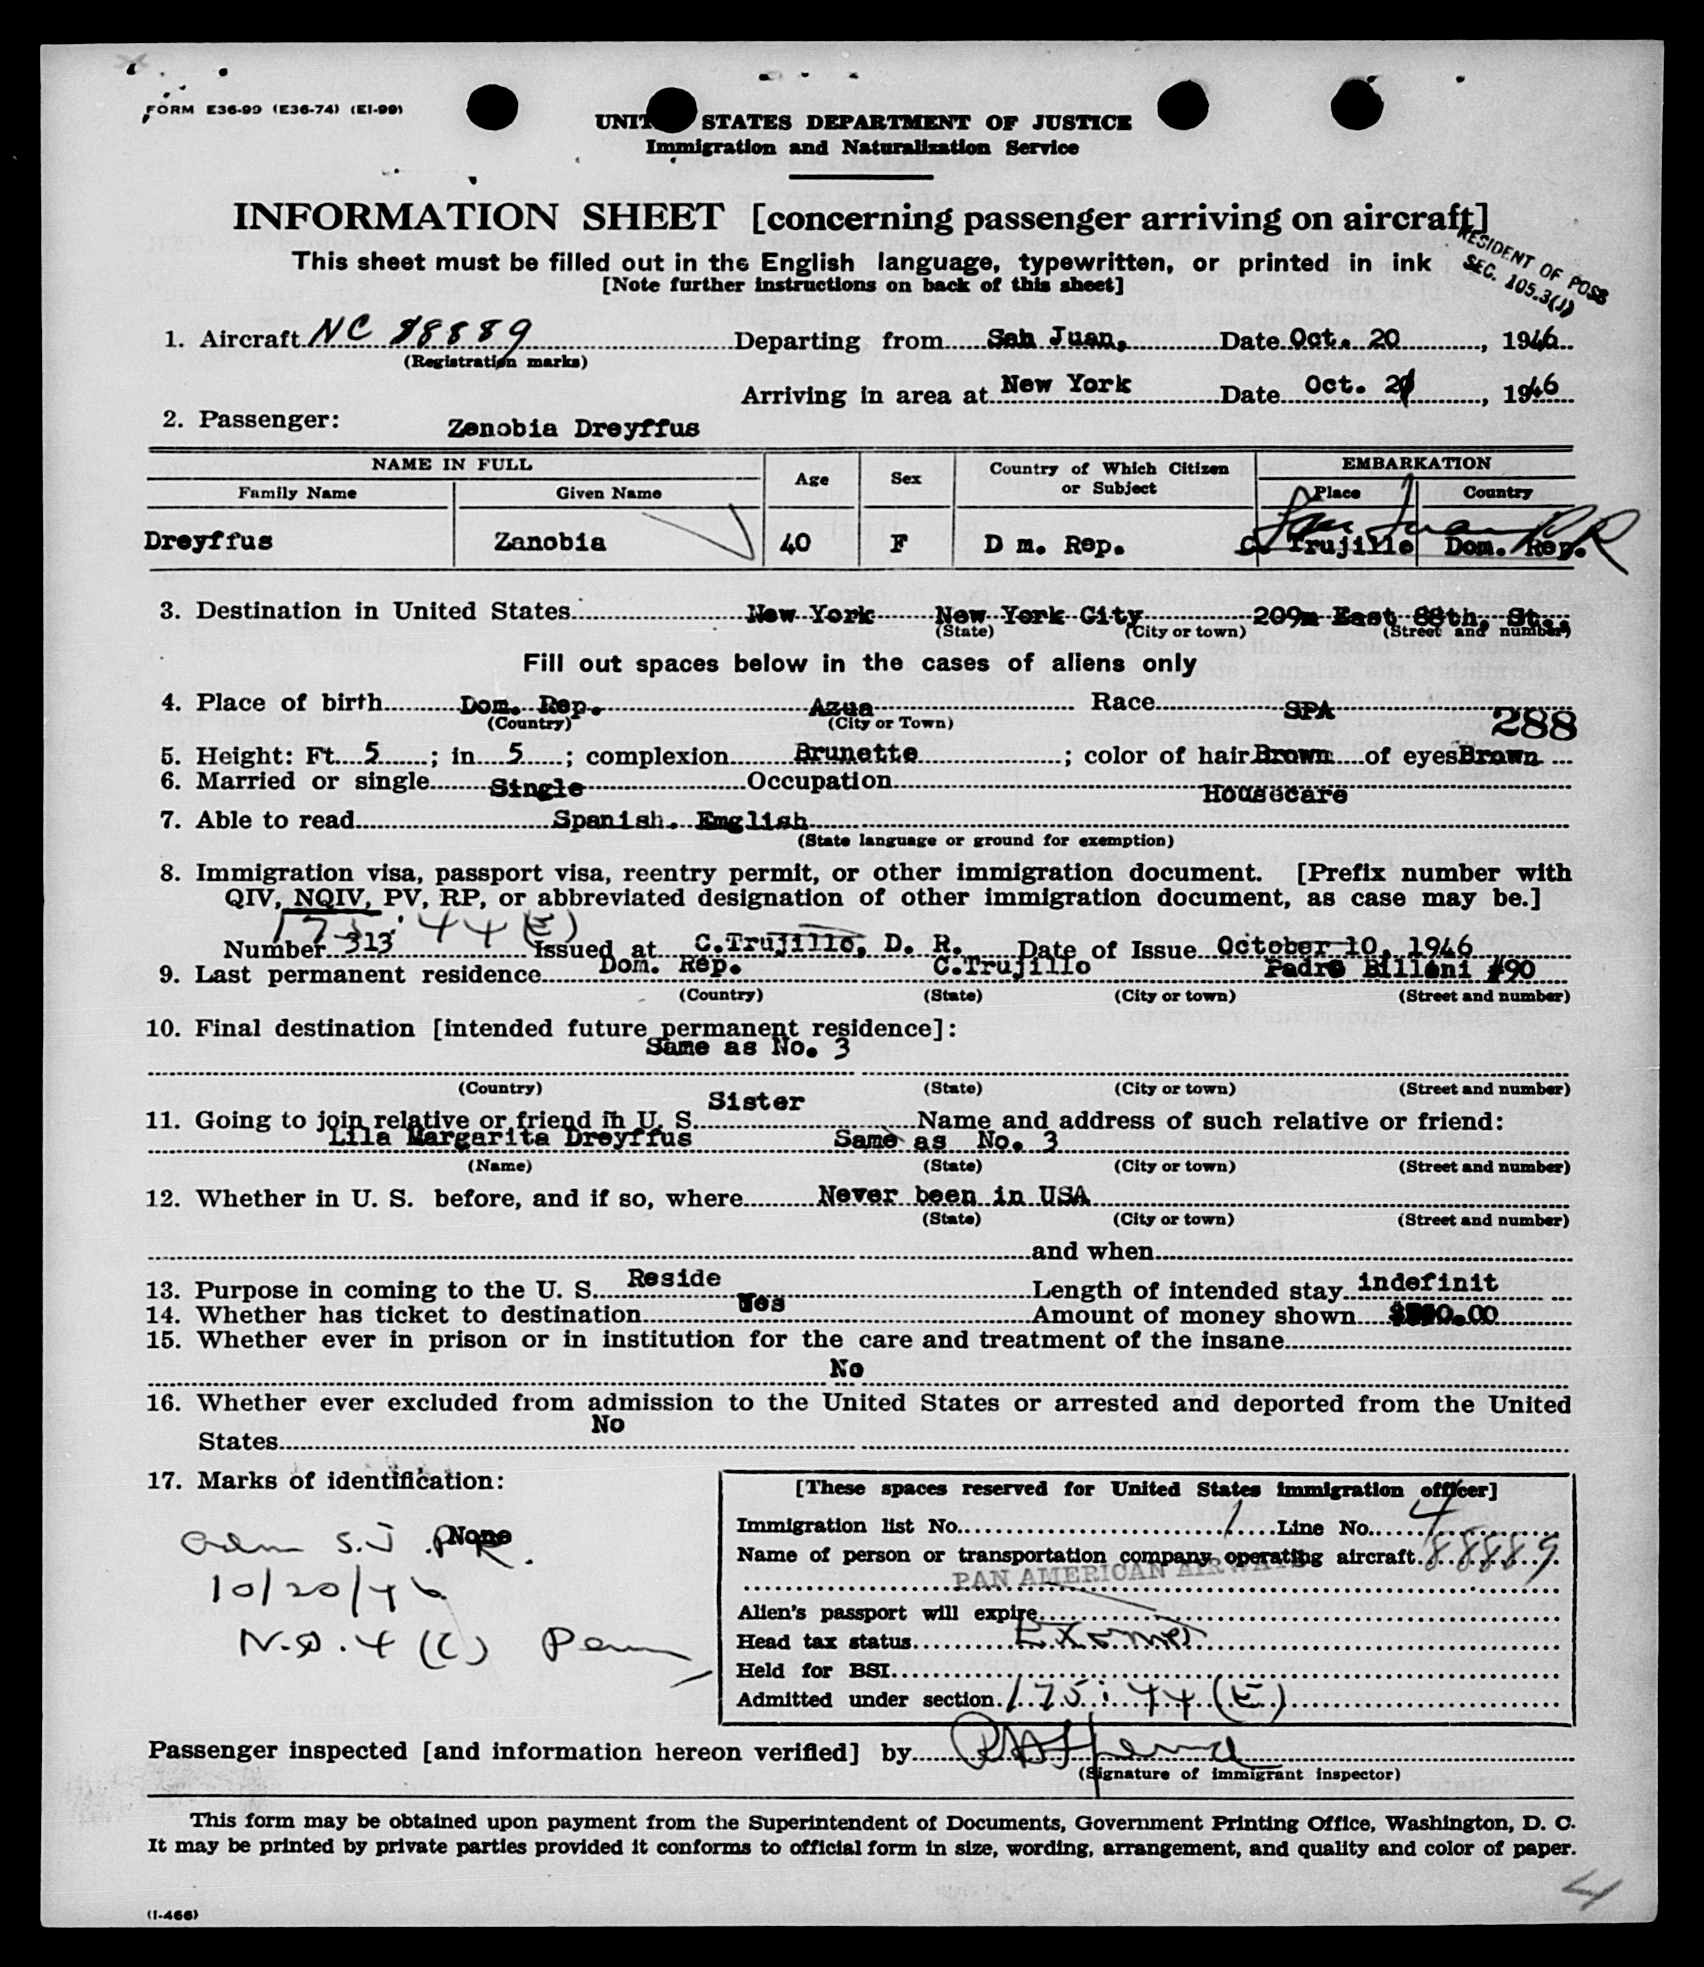 FORM E36-99 (E36-74) (EI-99)
UNIT STATES DEPARTMENT OF JUSTICE
Immigration and Naturalization Service
INFORMATION SHEET [concerning passenger arriving on aircraft]
This sheet must be filled out in the English language, typewritten, or printed in ink
[Note further instructions on back of this sheet]
RESIDENT OF POSS
SEC. 105.3(J)
1. Aircraft NC 88889 Departing from San Juan, Date Oct. 20, 1946
(Registration marks)
Arriving in area at New York Date Oct. 21, 1946
2. Passenger: Zenobia Dreyffus
NAME IN FULL Age Sex Country of Which Citizen or Subject EMBARKATION
Family Name Given Name Place Country
San Juan PR
Dreyffus Zanobia 40 F D m. Rep. C. Trujillo Dom. Rep.
3. Destination in United States New York New York City 209 East 88th. St.,
(State) (City or town) (Street and number)
Fill out spaces below in the cases of aliens only
4. Place of birth Dom. Rep. Azua Race SPA
(Country) (City or Town)
288
5. Height: Ft. 5; in 5; complexion Brunette; color of hair Brown of eyes Brown
6. Married or single Single Occupation Housecare
7. Able to read Spanish. English
(State language or ground for exemption)
8. Immigration visa, passport visa, reentry permit, or other immigration document. [Prefix number with
QIV, NQIV, PV, RP, or abbreviated designation of other immigration document, as case may be.]
44 (E)
Number 313 Issued at C.Trujillo, D. R. Date of Issue October 10, 1946
9. Last permanent residence Dom. Rep. C.Trujillo Padre Billini #90
(Country) (State) (City or town) (Street and number)
10. Final destination [intended future permanent residence]:
Same as No. 3
(Country) (State) (City or town) (Street and number)
Sister
11. Going to join relative or friend in U. S. Name and address of such relative or friend:
Lila Margarita Dreyffus Same as No. 3
(Name) (State) (City or town) (Street and number)
12. Whether in U. S. before, and if so, where Never been in USA
(State) (City or town) (Street and number)
and when
13. Purpose in coming to the U. S. Reside Length of intended stay indefinit
14. Whether has ticket to destination Yes Amount of money shown
15. Whether ever in prison or in institution for the care and treatment of the insane
No
16. Whether ever excluded from admission to the United States or arrested and deported from the United
No
States
17. Marks of identification:
None
Adm S.J. P.R.
10/20/46
N.D. 4 (C)
[These spaces reserved for United States immigration officer]
Immigration list No. 1 Line No. 4
Name of person or transportation company operating aircraft 88889
PAN AMERICAN AIRWAYS
Alien's passport will expire
Head tax status Exempt
Held for BSI
Admitted under section 175:44 (E)
Passenger inspected [and information hereon verified] by
(Signature of immigrant inspector)
This form may be obtained upon payment from the Superintendent of Documents, Government Printing Office, Washington, D. C.
It may be printed by private parties provided it conforms to official form in size, wording, arrangement, and quality and color of paper.
4
(I-466)